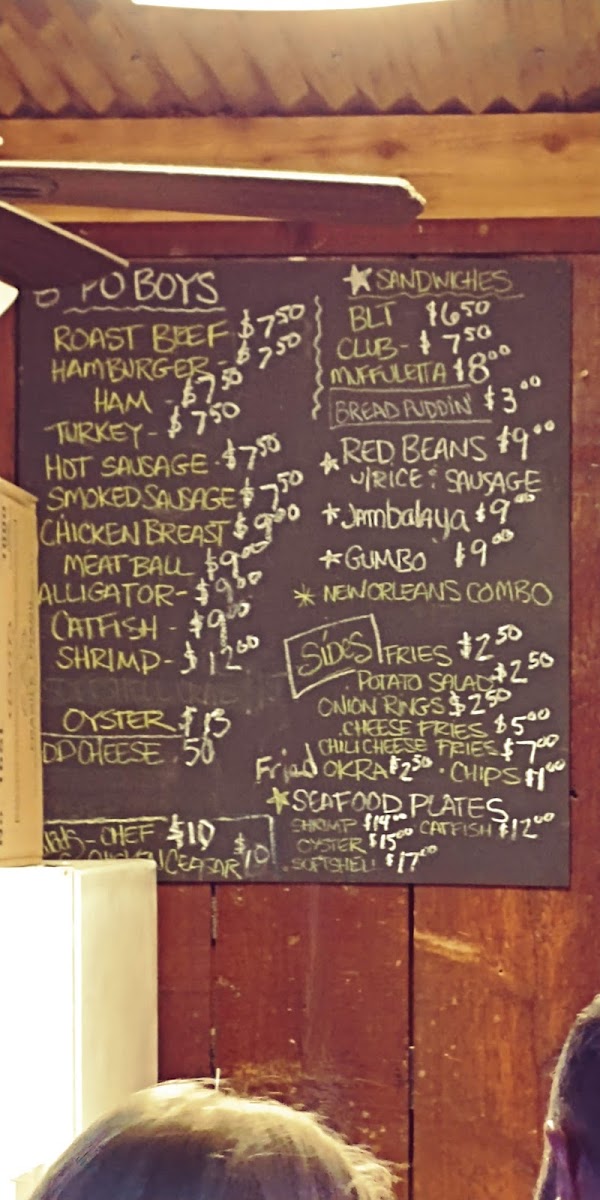 PO BOYS
ROAST BEEF $7.50
HAMBURGER - $7.50
HAM - $7.50
TURKEY - $7.50
HOT SAUSAGE - $7.50
SMOKED SAUSAGE $7.50
CHICKEN BREAST $9.00
MEATBALL $9.00
ALLIGATOR - $9.00
CATFISH - $9.00
SHRIMP - $12.00
OYSTER $13
CHEESE .50
CHEF $10
CEASAR $10
SANDWICHES
BLT $6.50
CLUB - $7.50
MUFFULETTA $8.00
BREAD PUDDIN' $3.00
RED BEANS $9.00
W/RICE & SAUSAGE
Jambalaya $9.00
GUMBO $9.00
NEW ORLEANS COMBO
Sides FRIES $2.50
POTATO SALAD $2.50
ONION RINGS $2.50
CHEESE FRIES $5.00
CHILI CHEESE FRIES $7.00
Fried OKRA $2.50 · CHIPS $1.00
SEAFOOD PLATES
SHRIMP $14.00 CATFISH $12.00
OYSTER $15.00
SOFTSHELL $17.00